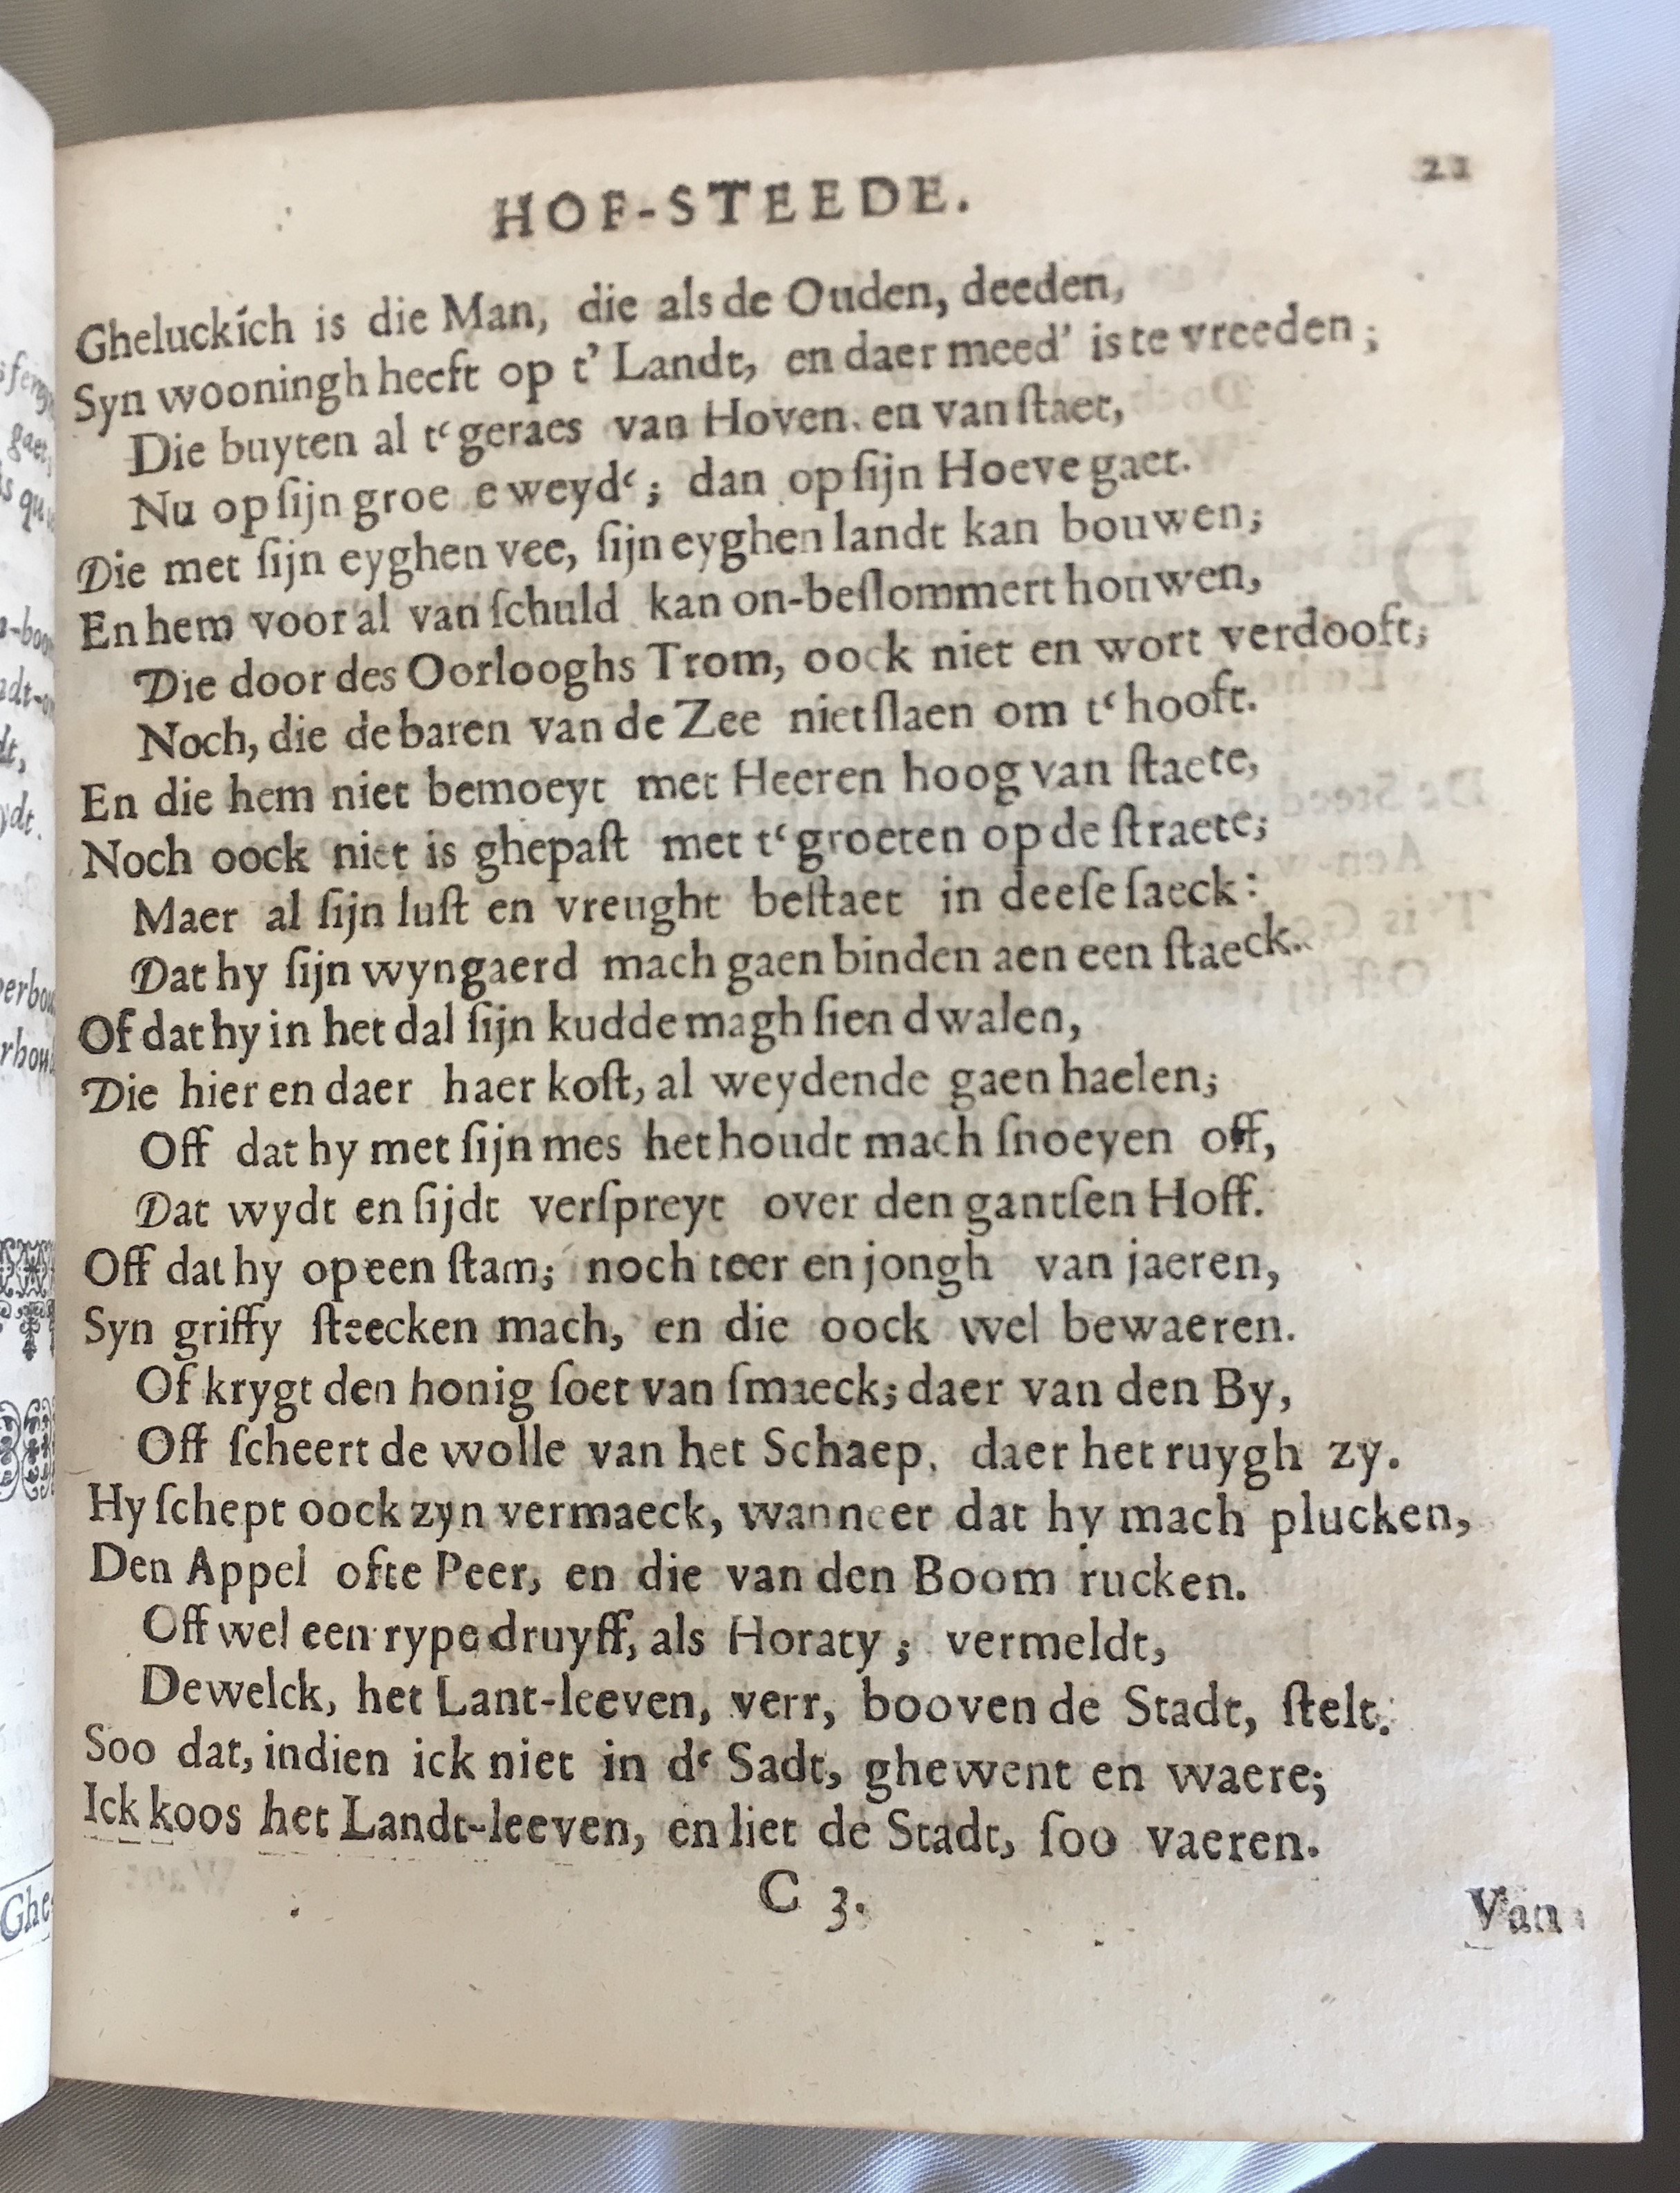 HOF-STEEDE.
21
Gheluckich is die Man, die als de Ouden, deeden,
Syn wooningh heeft op t’ Landt, en daer meed’ is te vreeden;
Die buyten al t‘ geraes van Hoven, en van ſtaet,
Nu op ſijn groe e weyd‘; dan op ſijn Hoeve gaet.
Die met ſijn eyghen vee, ſijn eyghen landt kan bouwen;
En hem voor al van ſchuld kan on-beſlommert houwen,
Die door des Oorlooghs Trom, oock niet en wort verdooft;
Noch, die de baren van de Zee niet ſlaen om t‘ hooft.
En die hem niet bemoeyt met Heeren hoog van ſtaete,
Noch oock niet is ghepaſt met t‘ groeten op de ſtraete;
Maer al ſijn luſt en vreught beſtaet in deeſe ſaeck:
Dat hy ſijn wyngaerd mach gaen binden aen een ſtaeck.
Of dat hy in het dal ſijn kudde magh ſien dwalen,
Die hier en daer haer koſt, al weydende gaen haelen;
Off dat hy met ſijn mes het houdt mach ſnoeyen off,
Dat wydt en ſijdt verſpreyt over den gantſen Hoff.
Off dat hy op een ſtam; noch teer en jongh van jaeren,
Syn griffy ſteecken mach, en die oock wel bewaeren.
Of krygt den honig ſoet van ſmaeck; daer van den By,
Off ſcheert de wolle van het Schaep, daer het ruygh zy.
Hy ſchept oock zyn vermaeck, wanneer dat hy mach plucken,
Den Appel ofte Peer, en die van den Boom rucken.
Off wel een rype druyff, als Horaty; vermeldt,
Dewelck, het Lant-leeven, verr, booven de Stadt, ſtelt.
Soo dat, indien ick niet in d‘ Sadt, ghewent en waere;
Ick koos het Landt-leeven, en liet de Stadt, ſoo vaeren.
C 3.
Van